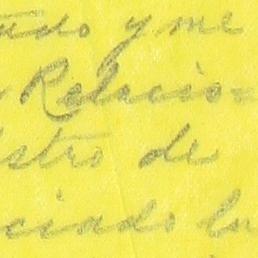 tado y me
Relacio-
istro de
ciado la